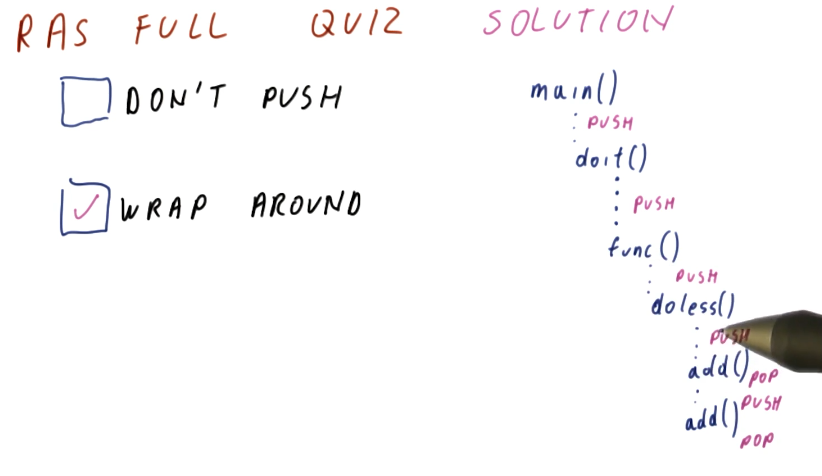 RAS FULL QUIZ SOLUTION
DON'T PUSH
WRAP AROUND
main()
PUSH
doit()
PUSH
func()
PUSH
doless()
PUSH
add() POP
add() PUSH
POP